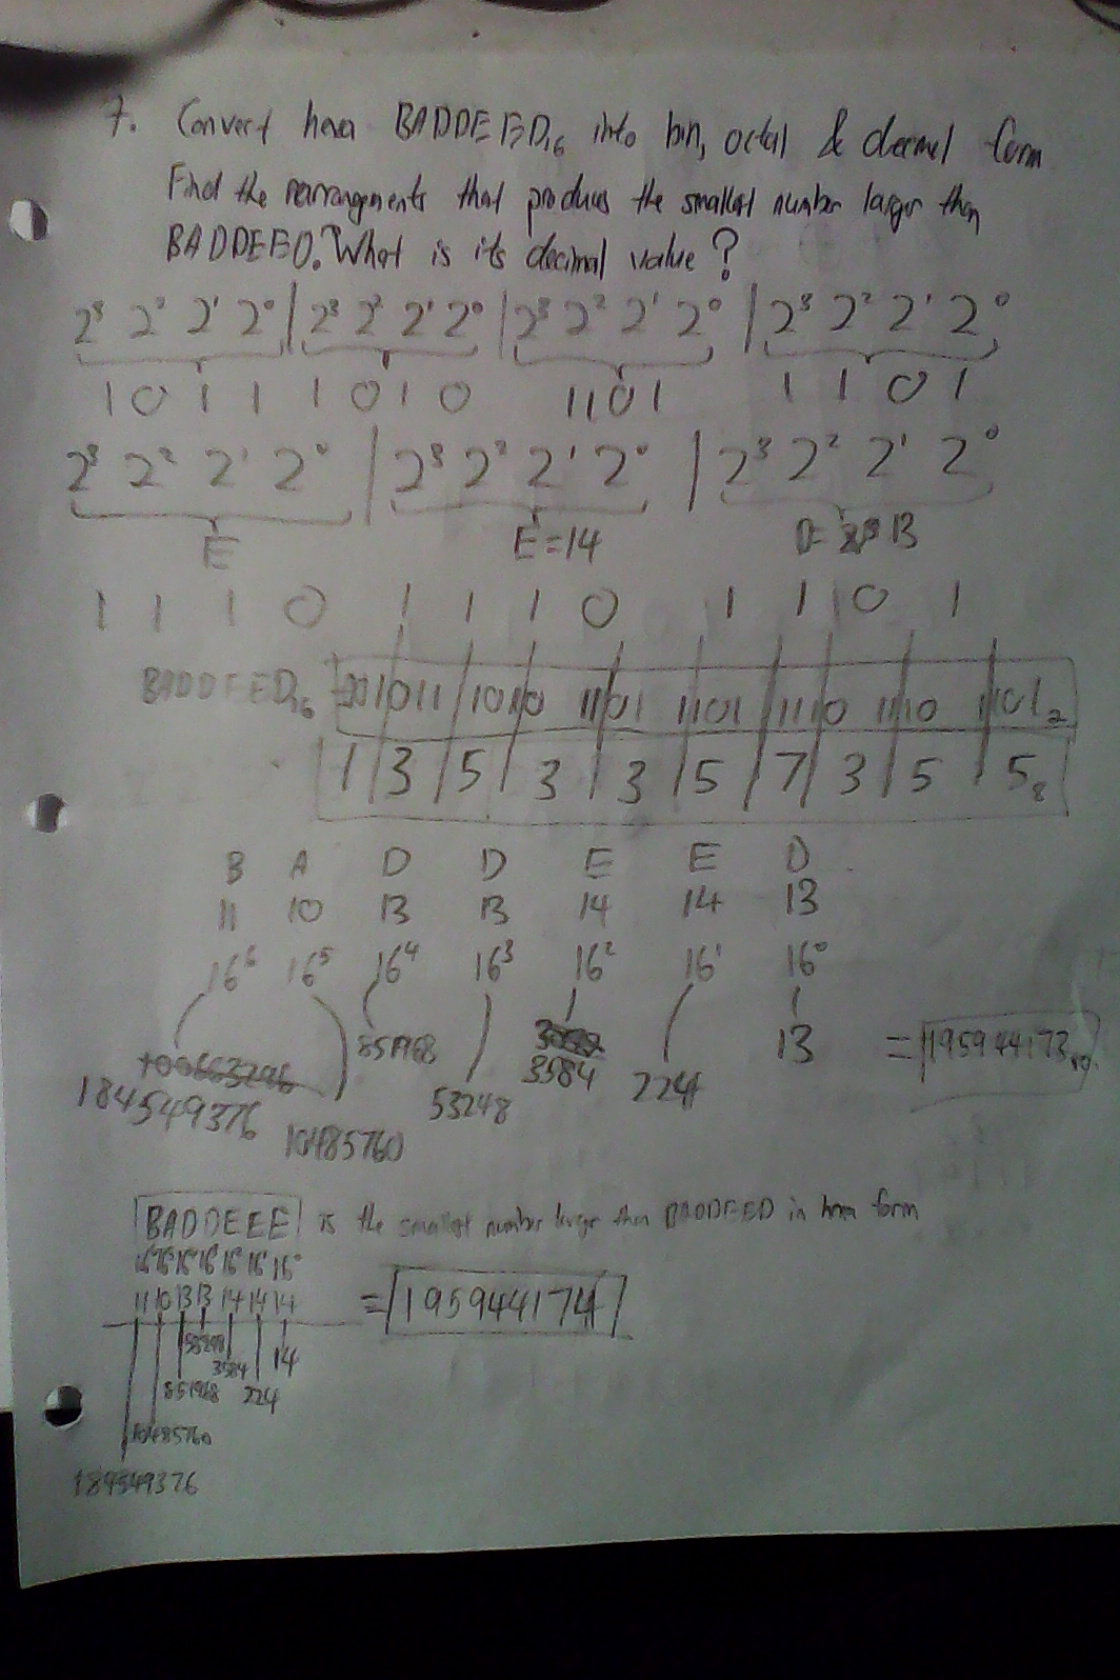 7. Convert hexa BADDEED₁₆ into bin, octal & decimal form
Find the rearrangements that produces the smallest number larger than
BADDEED. What is its decimal value?
2³ 2² 2¹ 2⁰ | 2³ 2² 2¹ 2⁰ | 2³ 2² 2¹ 2⁰ | 2³ 2² 2¹ 2⁰
1 0 1 1 1 0 1 0 1101 1 1 0 1
2³ 2² 2¹ 2⁰ | 2³ 2² 2¹ 2⁰ | 2³ 2² 2¹ 2⁰
E E=14 D= 13
1 1 1 0 1 1 1 0 1 1 0 1
BADDEED₁₆ 001011 1010 1101 1101 1110 1110 1101₂
1 | 3 | 5 | 3 | 3 | 5 | 7 | 3 | 5 | 5₈
B A D D E E D
11 10 13 13 14 14 13
16⁶ 16⁵ 16⁴ 16³ 16² 16¹ 16⁰
100663296 851968 13 = 195944173₁₀.
184549376 10485760 53248 3584 224
BADDEEE is the smallest number larger than BADDEED in hexa form
16⁶ 16⁵ 16⁴ 16³ 16² 16¹ 16⁰
11 10 13 13 14 14 14 = 195944174
53248
3584 14
851968 224
10485760
184549376